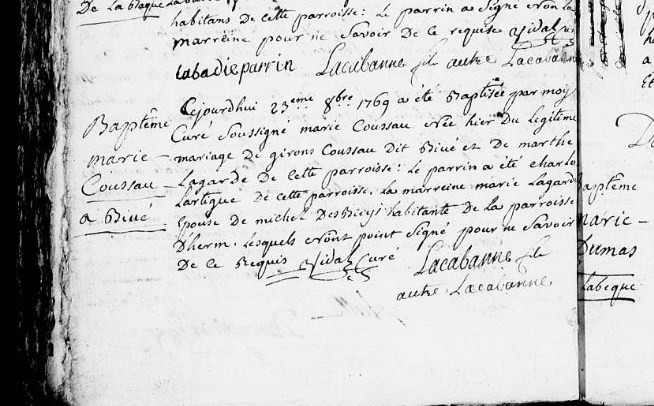 De Labaque
habitans de cette parroisse: Le parrin a signé
marreine pour ne savoir De ce requise Vidal
Labadie parrin Lacabanne fils autre Lacabanne
Cejourdhui 23eme 8bre 1769 a été Baptisée par moy
Baptême
Curé soussigné marie Coussau née hier Du legitime
marie
mariage de girons Coussau Dit Bivé et de marthe
Coussau
Lagarde De cette parroisse: Le parrin a été charles
a Bivé
Lartigue de cette parroisse, la marreine marie Lagarde
Epouse de michel habitante de la parroisse
Dherm. Lesquels n'ont point signé pour ne savoir
De ce Requis Vidal Curé
Lacabanne fils
autre Lacabanne
aptême
marie
Dumas
Labeque